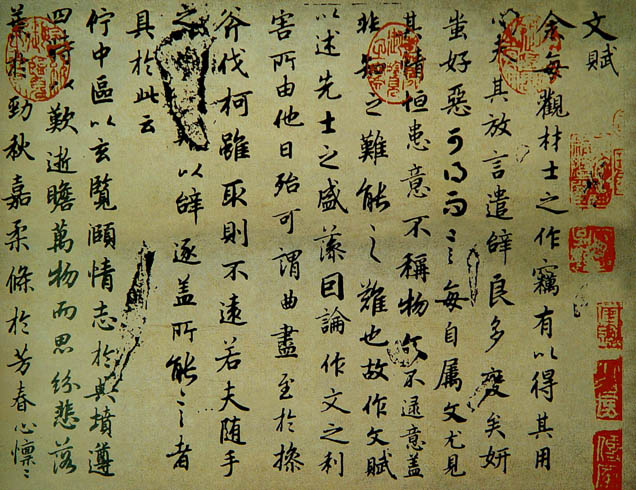 文賦
余每觀材士之作竊有以得其用
心夫其放言遣辭良多變矣妍
蚩好惡可得而言每自属文尤見
其情恒患意不稱物文不逮意蓋
非知之難能之難也故作文賦
以述先士之盛藻因論作文之利
害所由他日殆可謂曲盡至於操
斧伐柯雖取則不遠若夫随手
之以辭逐蓋所能言者
具於此云
佇中區以玄覽頤情志於典墳遵
四時以歎逝瞻萬物而思紛悲落
葉於勁秋嘉柔條於芳春心懍〻